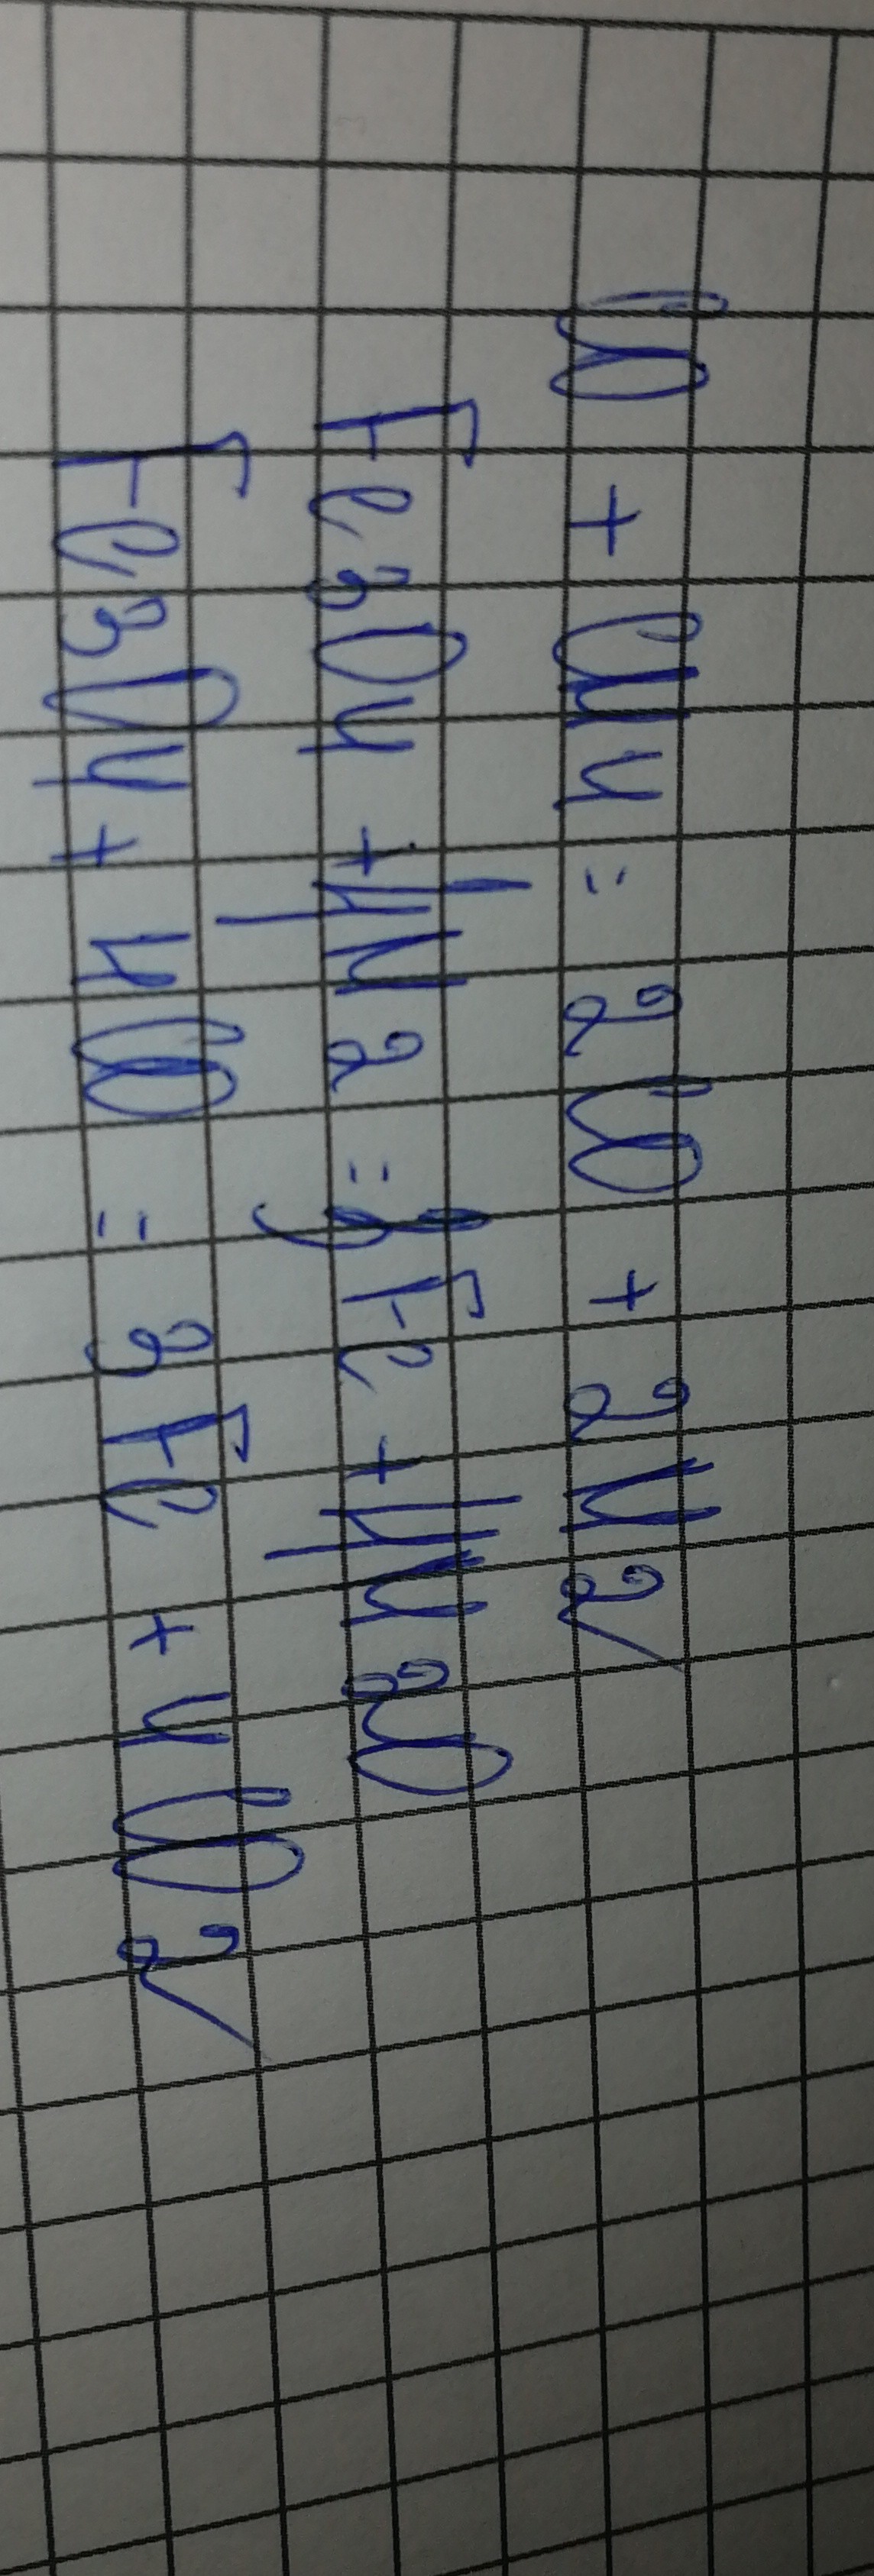 CO + CH4 = 2CO + 2H2
Fe3O4 + 4H2 = 3Fe + 4H2O
Fe3O4 + 4CO = 3Fe + 4CO2